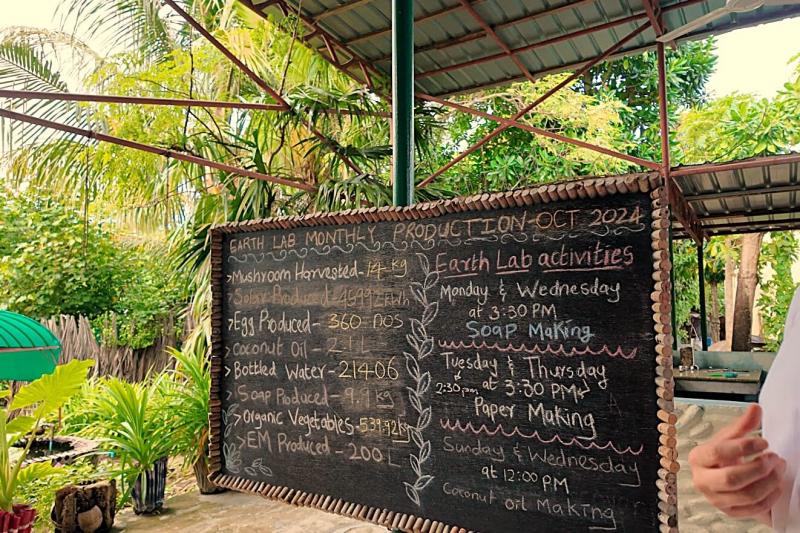 EARTH LAB MONTHLY PRODUCTION-OCT 2024
>Mushroom Harvested-14 kg
>Solar Produced-
>Egg Produced-360 nos
>Coconut Oil -
>Bottled Water-21406
>Soap Produced-9.9 kg
>Organic Vegetables-539.92kg
>EM Produced-200 L
Earth Lab activities
Monday & Wednesday
at 3:30 PM
Soap Making
Tuesday & Thursday
2:30pm & at 3:30 PM
Paper Making
Sunday & Wednesday
at 12:00 PM
Coconut oil Making